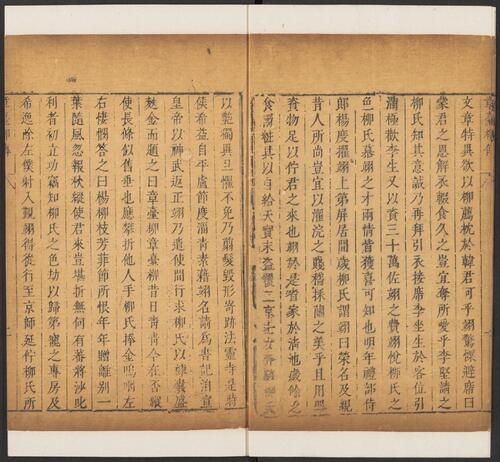 文章特異欲以柳薦枕於韓君可乎翊驚慄避席曰
蒙君之恩解衣輟食久之豈宜奪所愛乎李堅請之
柳氏知其意誠乃再拜引衣接席李坐翊於客位引
滿極歡李生又以資三十萬佐翊之費翊悅柳氏之
色柳氏慕翊之才兩情皆獲喜可知也明年禮部侍
郎楊度擢翊上第屏居間歲柳氏謂翊曰榮名及親
昔人所尚豈宜以濯浣之賤稽採蘭之美乎且用器
資物足以佇君之來也翊於是省家於清池歲餘乏
食鬻粧具以自給天寶末盜覆二京士女奔駭柳氏
以艷獨異且懼不免乃剪髮毀形寄跡法靈寺是時
侯希益自平盧節度淄青素藉翊名請為書記洎宣
皇帝以神武返正翊乃遣使間行求柳氏以練囊盛
麩金而題之曰章臺柳章臺柳昔日青青今在否縱
使長條似舊垂也應攀折他人手柳氏捧金嗚咽左
右悽憫答之曰楊柳枝芳菲節所恨年年贈離別一
葉隨風忽報秋縱使君來豈堪折無何有蕃將沙吒
利者初立功竊知柳氏之色劫以歸第寵之專房及
希逸除左僕射入覲翊得從行至京師延佇柳氏所